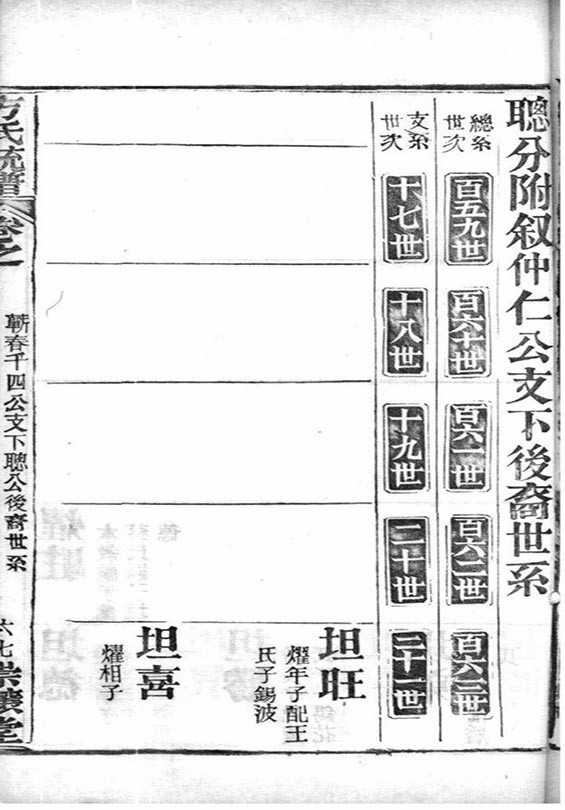 聰分附叙仲仁公支下後裔世系
總系世次
百五九世
百六十世
百六一世
百六二世
百六三世
支系世次
十七世
十八世
十九世
二十世
二十一世
坦旺
燿年子配王
氏子錫波
坦喜
燿相子
方氏統譜
卷之一
蘄春千四公支下聰公後裔世系
六七
堂